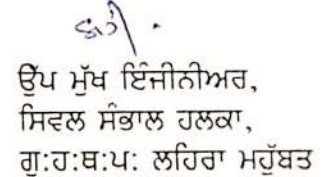 ਉੱਪ ਮੁੱਖ ਇੰਜੀਨੀਅਰ,
ਸਿਵਲ ਸੰਭਾਲ ਹਲਕਾ,
ਗੁ:ਹ:ਥ:ਪ: ਲਹਿਰਾ ਮਹੁੱਬਤ